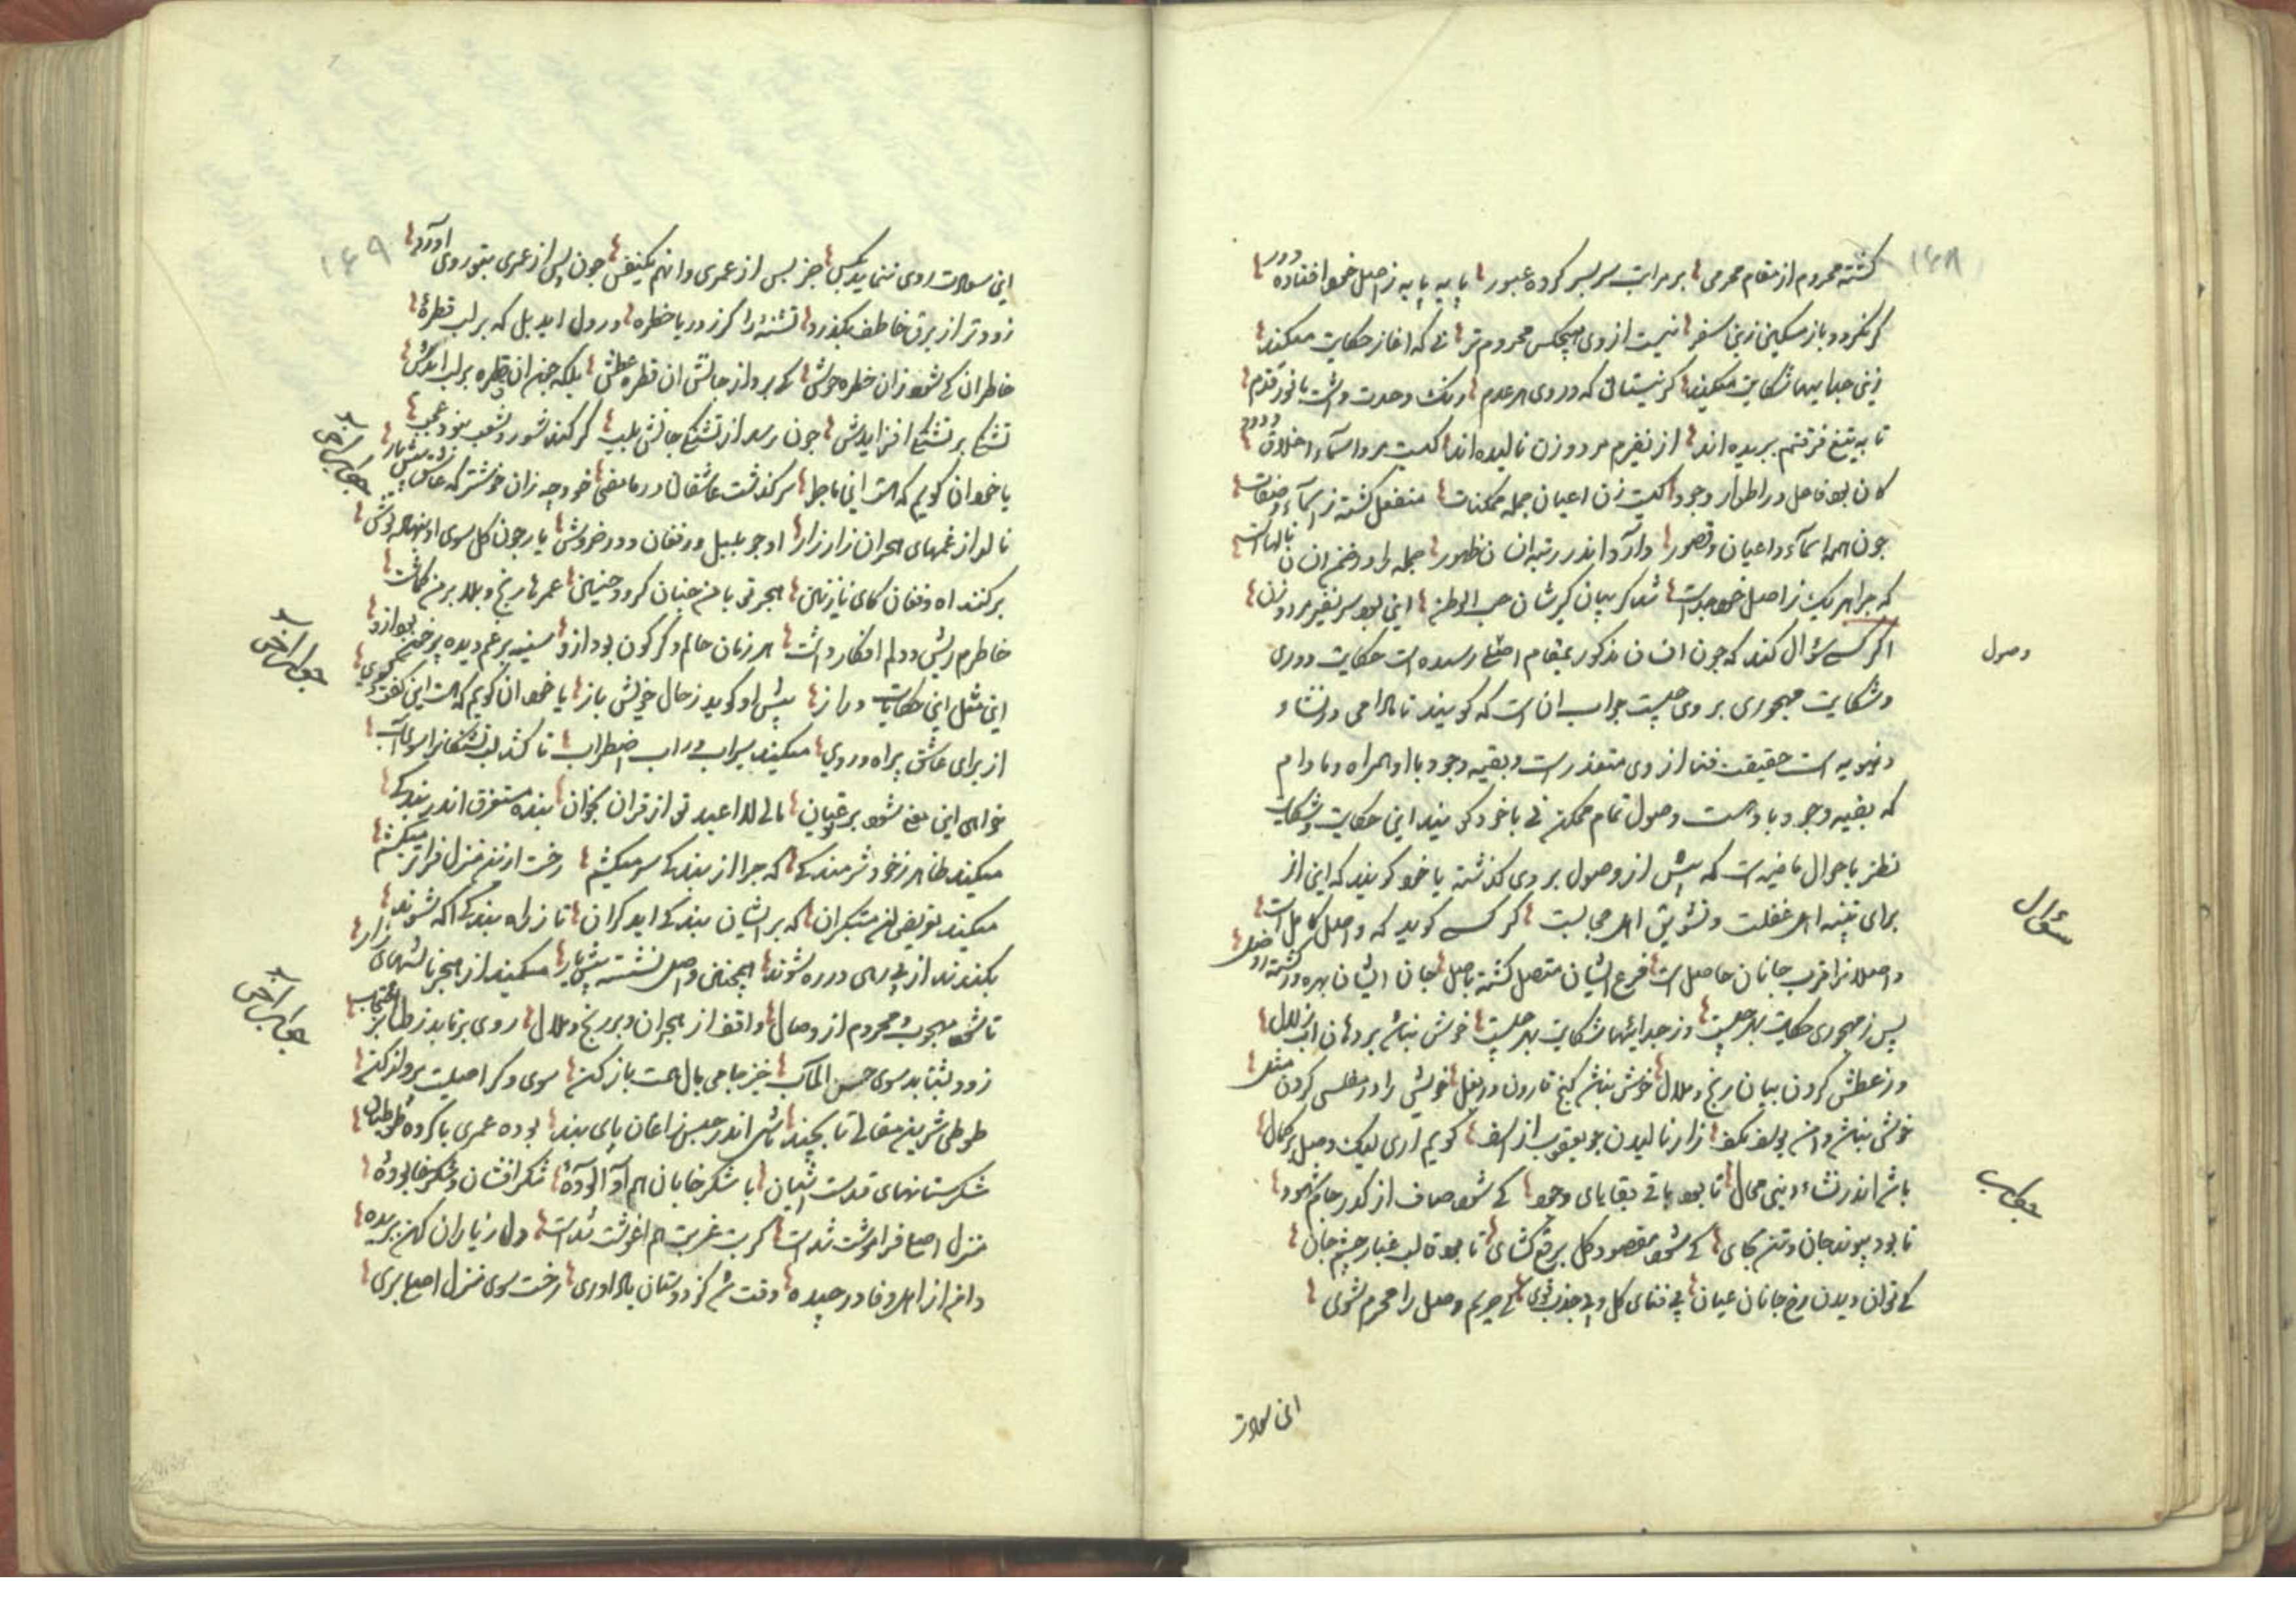 ۱۶۸
گشته محروم از مقام محرمی بر مراتب سر بسر کرده عبور پایه پایه ز اصل خود افتاده دور
گر نگردد باز مسکین زین سفر نیست از وی هیچکس محروم تر نی که اغاز حکایت میکند
زین جداییها شکایت میکند کز نیستانی که در وی هر عدم رنگ وحدت داشت با نور قدم
تا به تیغ فرقتم ببریده اند از نفیرم مرد و زن نالیده اند کیست مرد اسماء خلاق ودود
کان بود فاعل در اطوار وجود کیست زن اعیان جمله ممکنات منفعل گشته ز اسماء و صفات
چون همه اسماء و اعیان و قصور دارد اندر رتبه انسان ظهور جمله را در ضمن انسان نالهاست
که چرا هر یک ز اصل خود جداست شد گریبان گیرشان حب الوطن این بود سر نفیر مرد و زن
اگر کسی سؤال کند که چون انسان مذکور بمقام اصلی رسیده است حکایت دوری
وصول
و شکایت مهجوری بر وی چیست جواب انست که گویند تا مادامی در نشاء
دنیویه است حقیقت فنا از وی متعذر است و بقیه وجود با او همراه و مادام
که بقیه وجود با وست وصول تمام ممکن نی یا خود گویند این حکایت و شکایت
نظر باحوال ماضیه است که پیش از وصول بر وی گذشته یا خود گویند که این از
برای تنبیه اهل غفلت و تشویق اهل محابست گر کسی گوید که واصل کامل است
سؤال
واصلانرا قرب جانان حاصل است فرع ایشان متصل گشته باصل جان ایشان بهره ور گشته از وصل
پس ز مهجوری حکایت بهر چیست وز جداییها شکایت بهر چیست خوش نباشد بر دهان اب زلال
وز عطش کردن بیان رنج و ملال خوش نباشد گنج قارون در بغل خویش را در مفلسی کردن مثل
خوش نباشد دامن یوسف بکف زار نالیدن چو یعقوب از اسف گویم اری لیک وصل بر کمال
باشد اندر نشاء دنیی محال تا بود باقی بقایای وجود کی شود صاف از کدر جام شهود
جواب
تا بود پیوند جان و تن بجای کی شود مقصود کل برقع گشای تا بود قالب غبار چشم جان
کی توان دیدن رخ جانان عیان بی فنای کل و بی جذب قوی کی حریم وصل را محرم شوی
این سعادت
۱۶۹
این سعادت روی ننماید بکس جز پس از عمری وانهم یکنفس چون پس از عمری بتو روی اورد
زودتر از برق خاطف بگذرد تشنه را گر ز دریا خطره در دل اید بل که بر لب قطره
خاطر ان کی شود زان خطره خوش کی برد از جانش ان قطره عطش بلکه چون ان قطره بر لب ایدش
تشنگی بر تشنگی افزایدش چون رسد از تشنگی جانش بلب گر کند شور و شغب نبود عجب
یا خود ان گویم که هست این ماجرا سرگذشت عاشقان در ما مضی خود چه زان خوشتر که عاشق پیش یار
جواب آخر
نالد از غمهای هجران زار زار او چو بلبل در فغان و در خروش یار چون گل سوی او بنهاده گوش
بر کند اه و فغان کای نازنین هجر تو با من چنان کرد و چنین عمرها رنج و بلا بر من گماشت
خاطرم ریش و دلم افکار داشت هر زمان حالم دگرگون بود ازو سینه پر غم دیده پر خون بود ازو
جواب آخر
این مثل این حکایات دراز پیش او گوید ز حال خویش باز یا خود ان گویم که هست این گفت و گوی
از برای عاشق براه ورد وی میکند سیراب در اب اضطراب تا کشد لب تشنگانرا سوی اب
خواهی این معنی شود بر تو عیان مالی لا اعبد تو از قران بخوان بنده مستغرق اندر بندگی
میکند ظاهر ز خود شرمندگی که چرا از بندگی سر میکشم رخت ازین منزل فراتر میکشم
میکند تعریض ان متکبران که بر ایشان بندگی اید گران تا ز راه بندگی اگه شوند
بگذرند از بی رهی در ره شوند همچنین واصل نشسته پیش یار میکند از هجر نالشهای زار
تا شود مهجوب و محروم از وصال واقف از هجران و بر رنج و ملال روی بر تابد ز طال اغتراب
جواب آخر
زود بشتابد سوی حسن المآب خیز جامی بال همت باز کن سوی وکر اصلیت پرواز کن
طوطی شیرین مقالی تا بچند باشی اندر حبس زاغان پای بند بوده عمری با گروه طوطیان
شکرستانهای قدست اشیان با شکر خایان هم آوا بوده شکر افشان و شکر خا بوده
منزل اصلی فراموشت شد است کربت غربت هم اغوشت شد است دل ز یاران کهن ببریده
دامن از اهل وفا در چیده وقت شد کز دوستان یاد اوری رخت سوی منزل اصلی بری